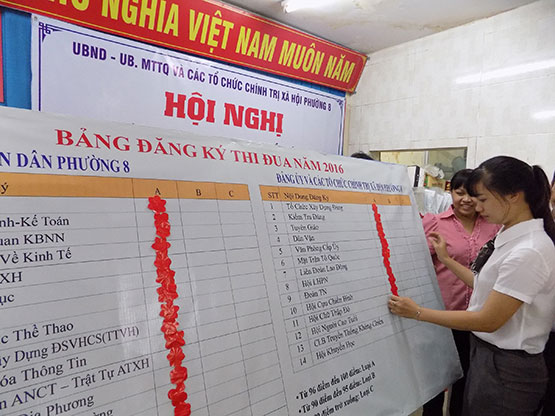 NGHĨA VIỆT NAM MUÔN NĂM
UBND - UB. MTTQ VÀ CÁC TỔ CHỨC CHÍNH TRỊ XÃ HỘI PHƯỜNG 8
HỘI NGHỊ
BẢNG ĐĂNG KÝ THI ĐUA NĂM 2016
N DÂN PHƯỜNG 8
ý A B C
nh-Kế Toán
uan KBNN
Về Kinh Tế
TXH
ục
c Thể Thao
ây Dựng ĐSVHCS(TTVH)
óa Thông Tin
n ANCT - Trật Tự ATXH
Địa Phương
ĐẢNG ỦY VÀ CÁC TỔ CHỨC CHÍNH TRỊ XÃ HỘI PHƯỜNG 8
STT Nội Dung Đăng Ký A
1 Tổ Chức Xây Dựng Đảng
2 Kiểm Tra Đảng
3 Tuyên Giáo
4 Dân Vận
5 Văn Phòng Cấp Ủy
6 Mặt Trận Tổ Quốc
7 Liên Đoàn Lao Động
8 Hội LHPN
9 Đoàn TN
10 Hội Cựu Chiến Binh
11 Hội Chữ Thập Đỏ
12 Hội Người Cao Tuổi
13 CLB Truyền Thống Kháng Chiến
14 Hội Khuyến Học
• Từ 96 điểm đến 100 điểm: Loại A
• Từ 90 điểm đến 95 điểm: Loại B
90 điểm trở xuống: Loại C